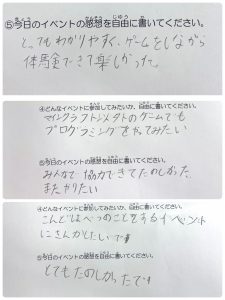 ⑤今日のイベントの感想を自由に書いてください。
とってもわかりやすく、ゲームをしながら
体験できて楽しかった。
④どんなイベントに参加してみたいか、自由に書いてください。
マインクラフト以外のゲームでも
プログラミングをやってみたい
⑤今日のイベントの感想を自由に書いてください。
みんなで協力できてたのしかった
またやりたい
④どんなイベントに参加してみたいか、自由に書いてください。
こんどはべつのことをするイベント
にさんかしたいです
⑤今日のイベントの感想を自由に書いてください。
とてもたのしかったです